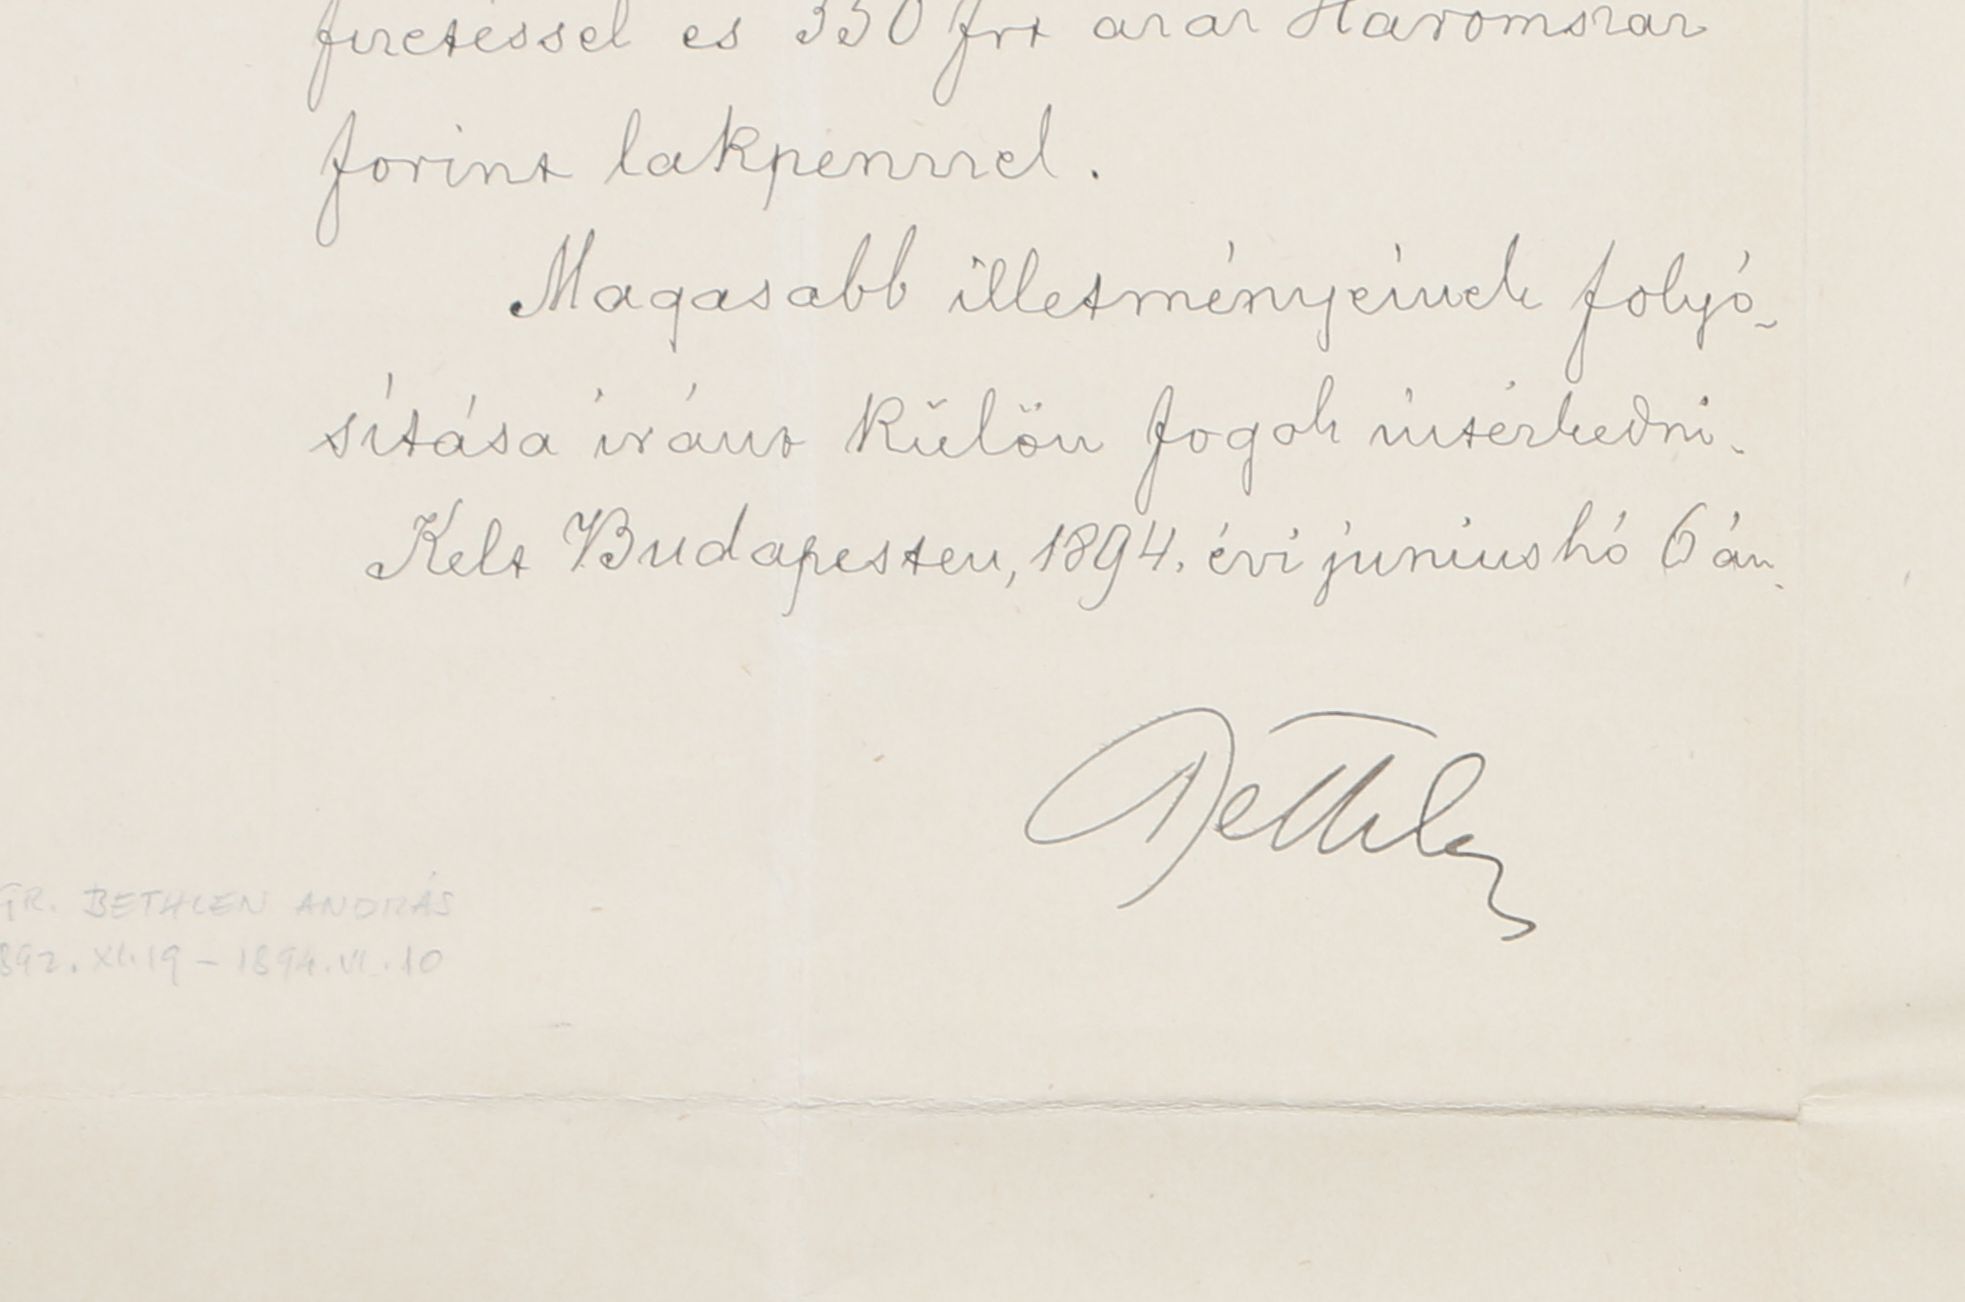 fizetéssel és frt azaz Háromszáz
forint lakpénzzel.
Magasabb illetményeinek folyó-
sítása iránt külön fogok intézkedni.
Kelt Budapesten, 1894. évi junius hó 6 án.
Bethlen
GR. BETHLEN ANDRÁS
892. XI.19 – 1894.VI.10